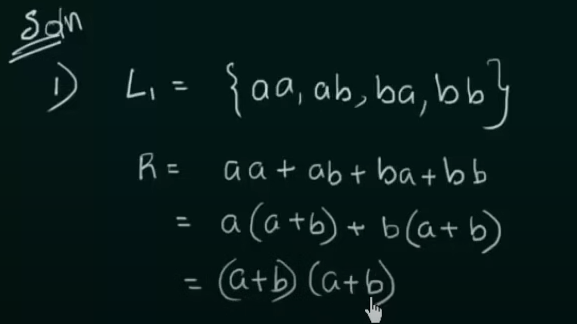 Soln
1) L₁ = {aa, ab, ba, bb}
R = aa + ab + ba + bb
= a(a+b) + b(a+b)
= (a+b) (a+b)